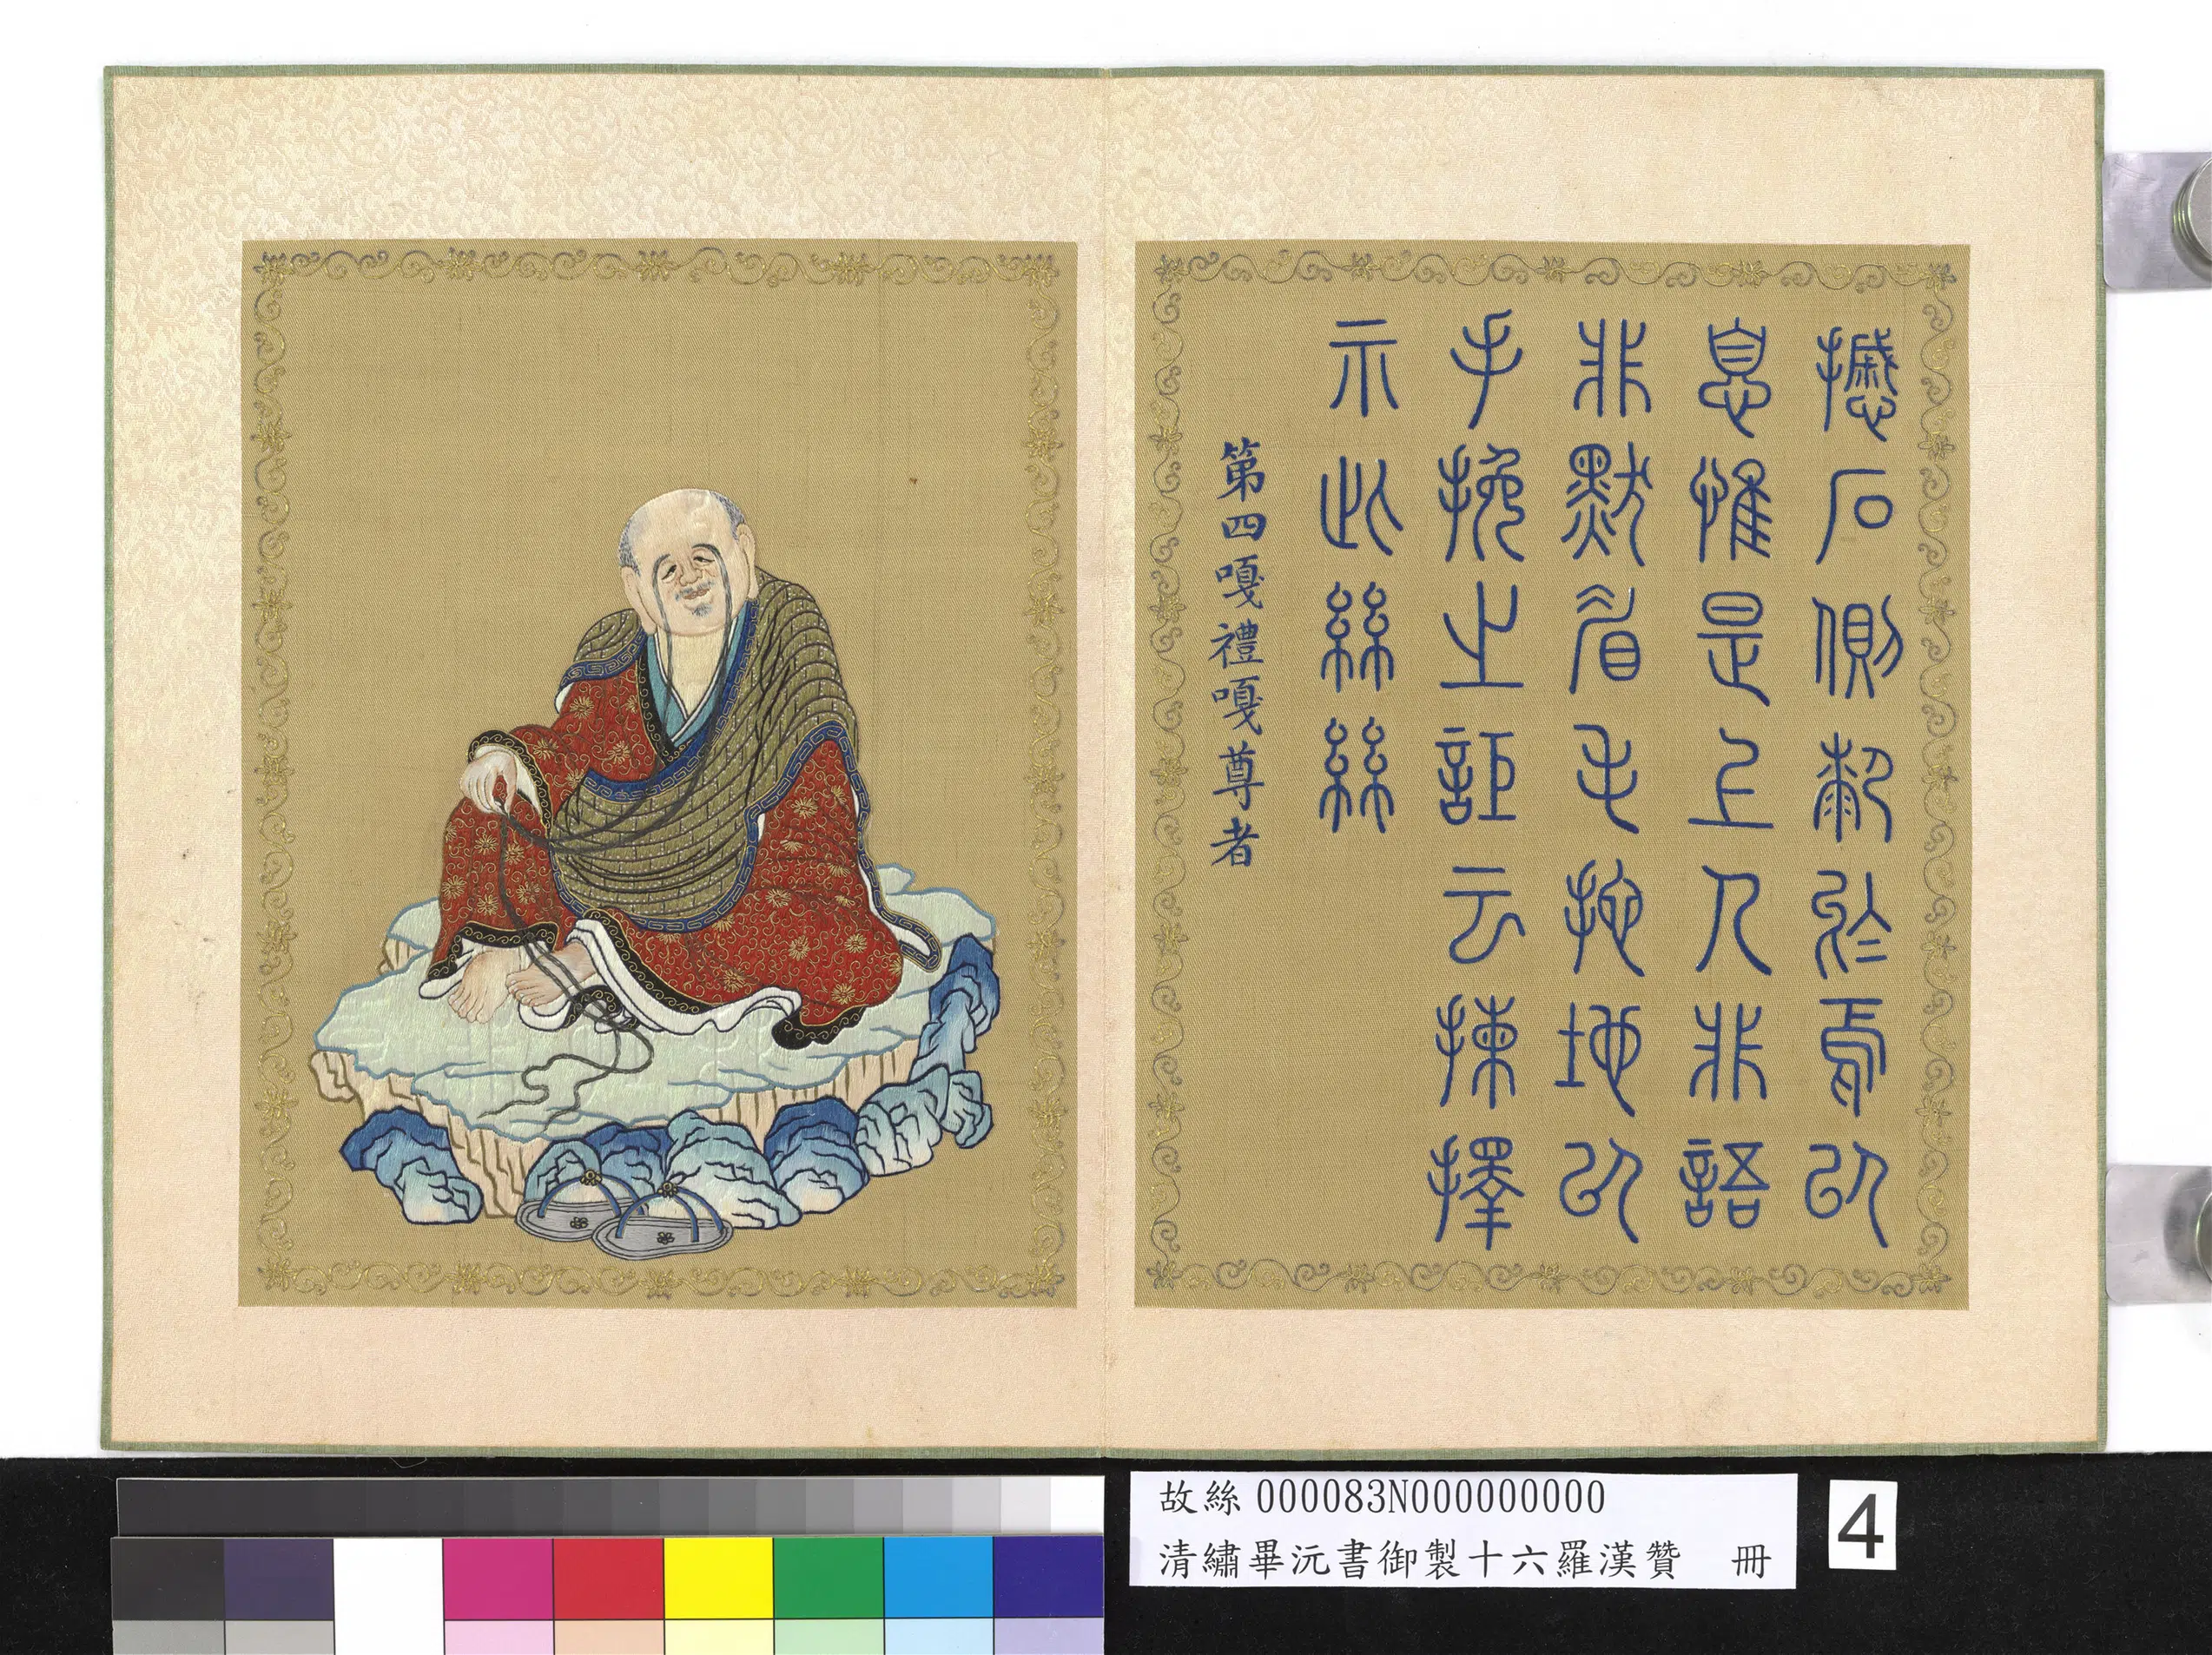 撼石側於焉以
息惟是上人非語
非默眉毛拖地以
手挽之詎云揀擇
示此絲絲
第四嘎禮嘎尊者
故絲000083N000000000
清繡畢沅書御製十六羅漢贊 冊
4